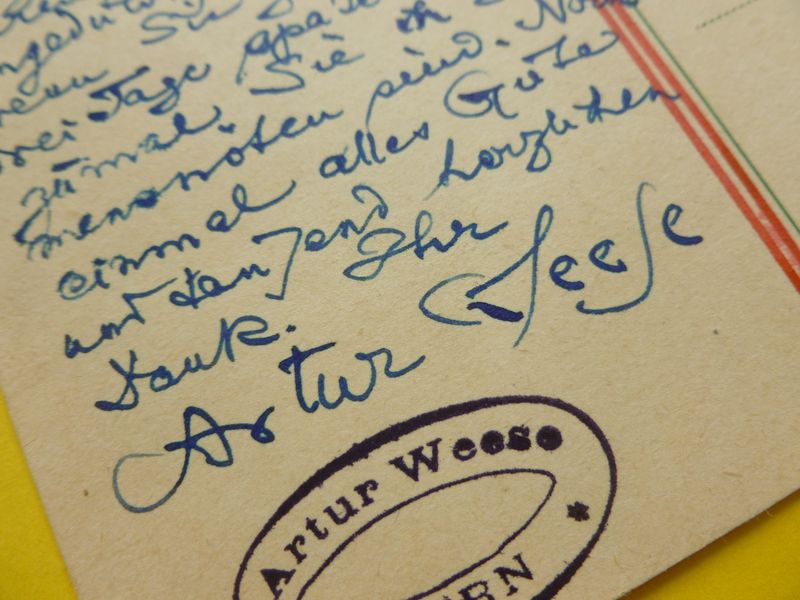 wenn Sie
drei Tage später
zumal Sie in
nöten sind. Noch
einmal alles Gute
und tausend herzlichen
Dank. Ihr
Artur Weese
Artur Weese
*
ERN